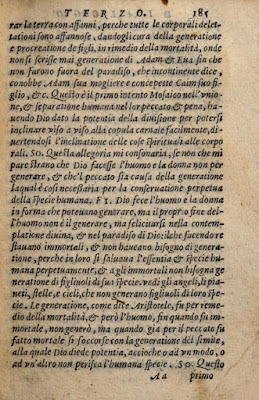 TERZO. 185
rar la terra con affanni, perche tutte le corporali delet-
tationi sono affannose, dandogli cura della generatione
e procreatione de figli, in rimedio della mortalità, onde
non si scrisse mai generatione di Adam & Eua sin che
non furono fuora del paradiso, che incontinente dice,
conobbe Adam sua mogliere e concepette Caim suo fi-
glio, &c. Questo è il primo intento Mosaico nell'vnio-
ne, & separatione humana nel lor peccato & pena, ha-
uendo Dio dato la potentia della diuisione per potersi
inclinare viso a viso alla copula carnale facilmente, di-
uertendosi l'inclinatione delle cose spirituali alle corpo
rali. SO. Questa allegoria mi consonaria, se non che mi
pare strano che Dio facesse l'huomo e la donna non per
generare, & che'l peccato sia causa della generatione
laqual è cosi necessaria per la conseruatione perpetua
della spécie humana. FI. Dio fece l'huomo e la donna
in forma che poteuano gentrare, ma il proprio fine del-
l'huomo non è il generare, ma feliciarsi nella contem-
platione diuina, & nel paradiso di Dio: ilche facendo re
stauano immortali, & non haueano bisogno di genera-
tione, perche in loro si saluaua l'essentia & spécie hu-
mana perpetuamente, & a gli immortali non bisogna ge
neratione di figliuoli di sua spécie. vedi gli angeli, i pia-
neti, stelle, e cieli, che non generano figliuoli di loro spe-
cie. Le generatione, come dice Aristotele, fu per reme-
dio della mortalità, & però l'huomo, fin quando fu im-
mortale, non generò, ma quando già per il peccato fu
fatto mortale si soccorse con la generatione del simile,
alla quale Dio diede potentia, accioche o ad vn modo, o
ad vn'altro non perisca l'humana spécie. SO. Questo
Aa primo